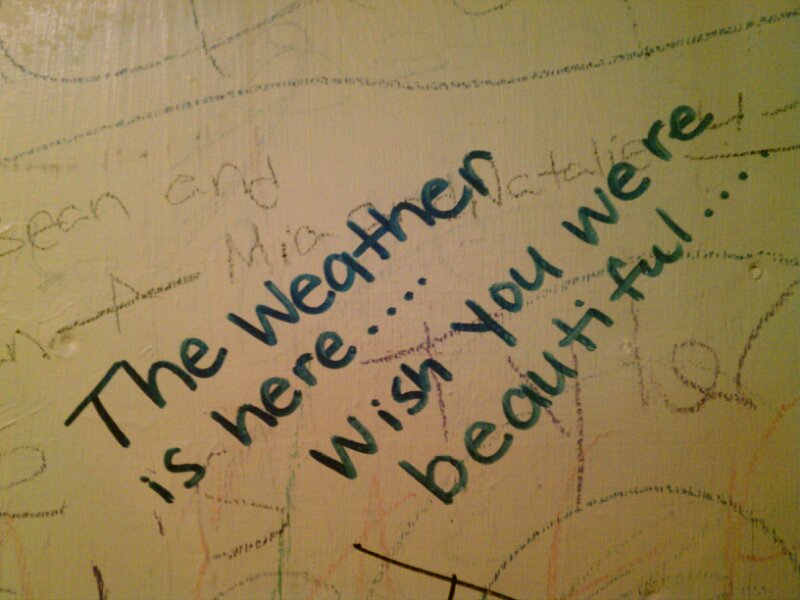 The weather
is here....
wish you were
beautiful....
Sean and
Mia and Natalie